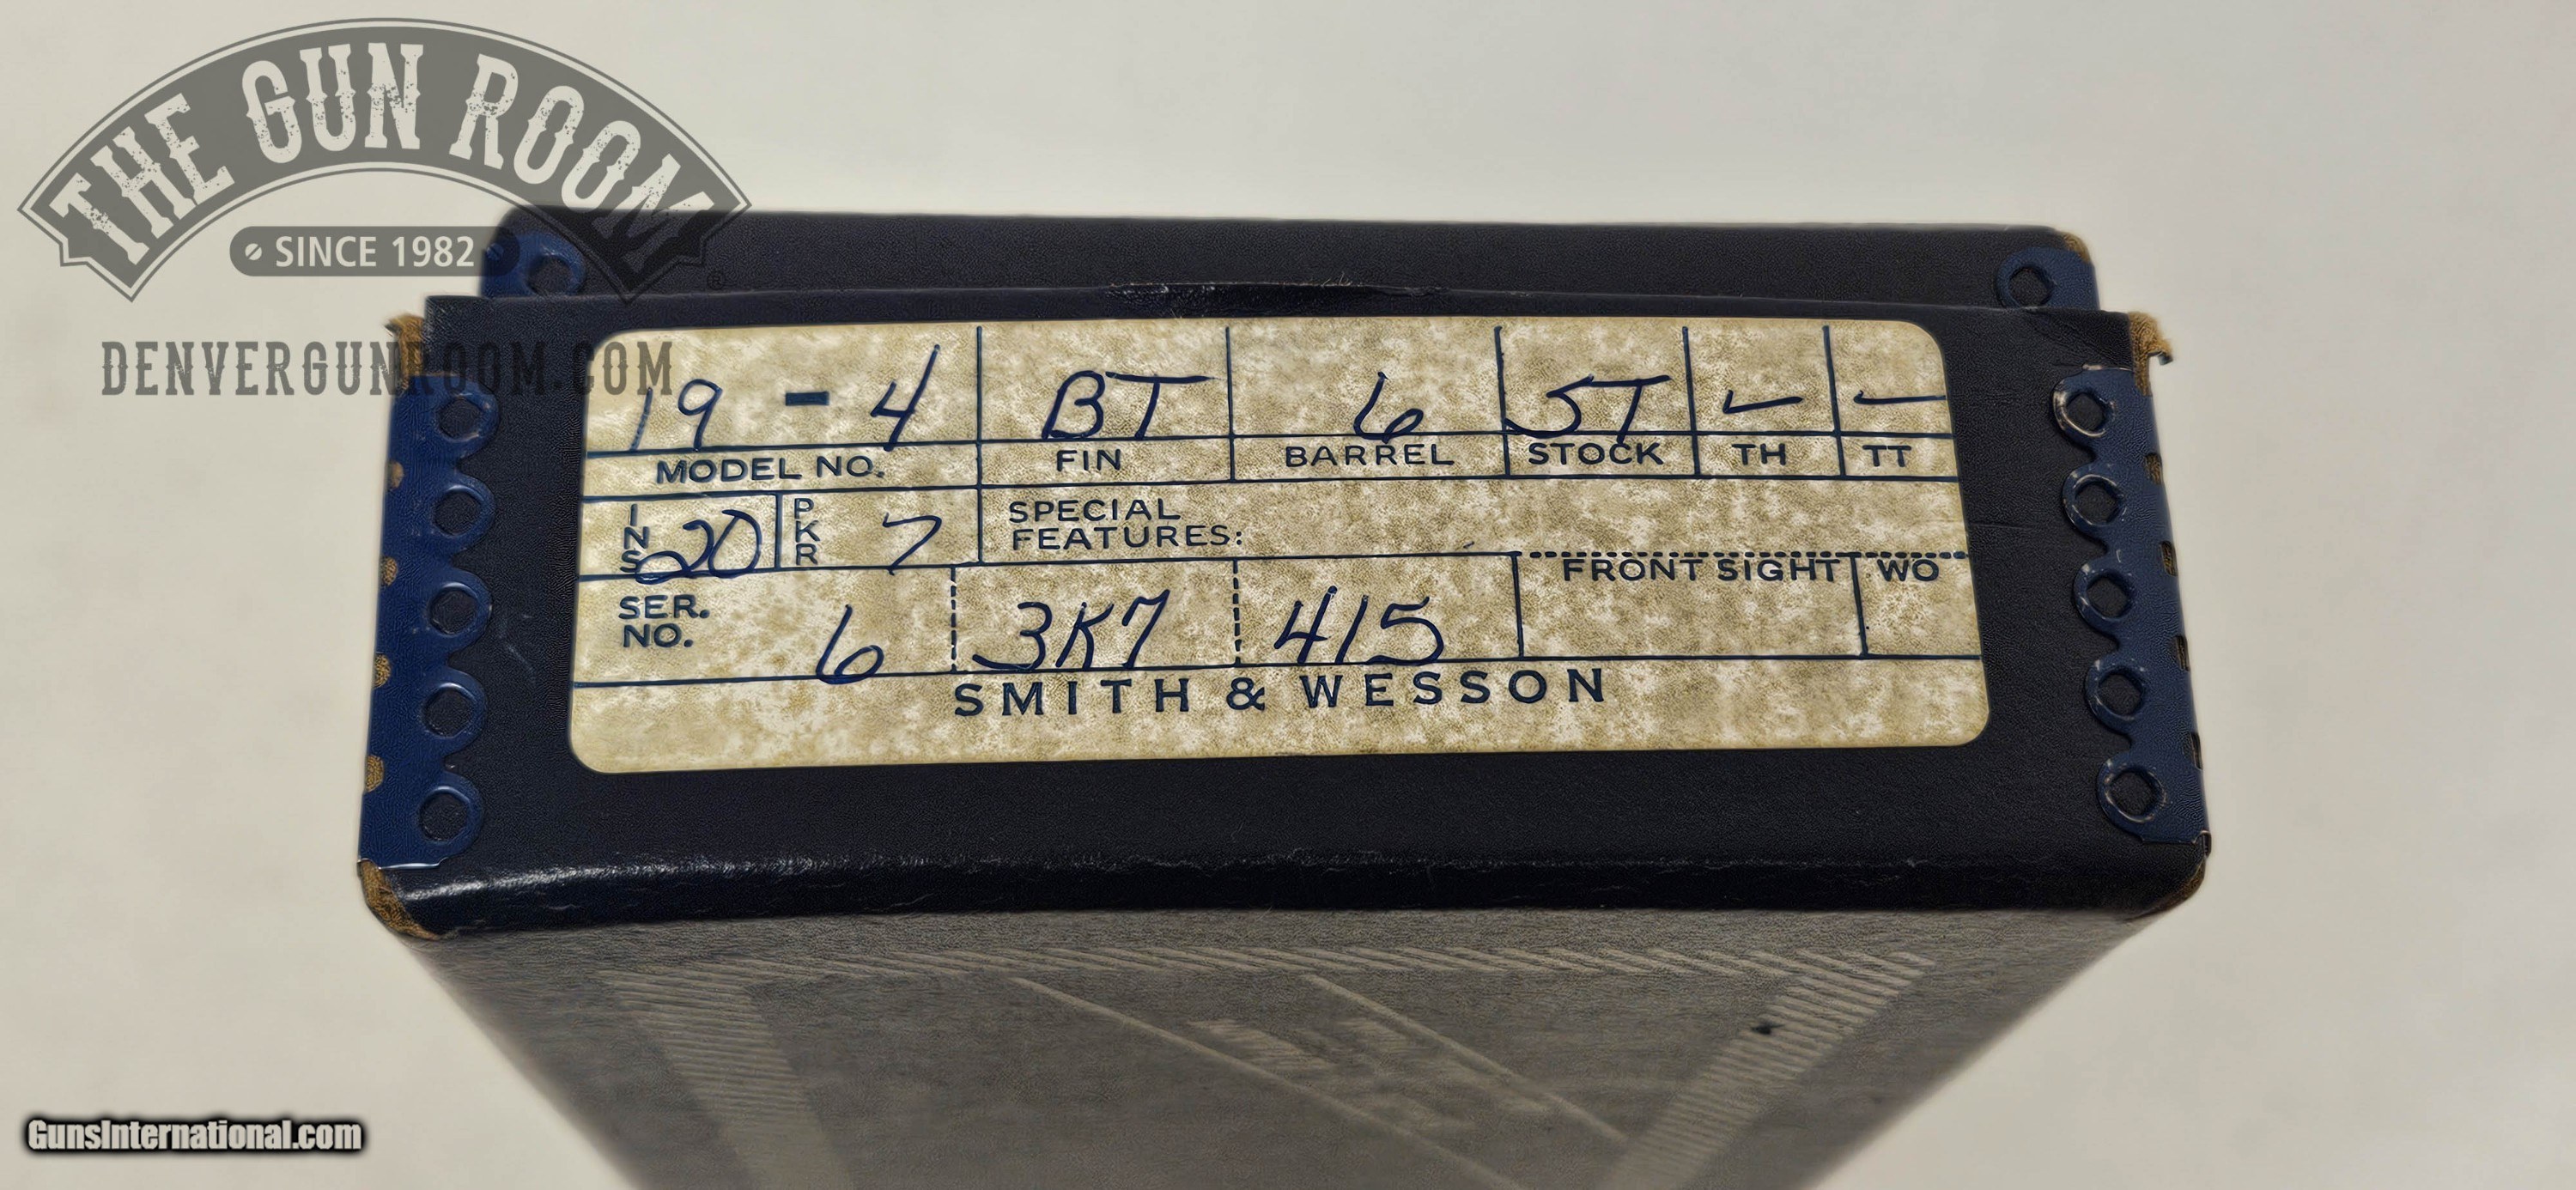 THE GUN ROOM
SINCE 1982
®
DENVERGUNROOM.COM
19 - 4 BT 6 ST ✓ ✓
MODEL NO. FIN BARREL STOCK TH TT
INS 20 PKR 7 SPECIAL
FEATURES:
FRONT SIGHT WO
SER.
NO. 6 3K7 415
SMITH & WESSON
GunsInternational.com